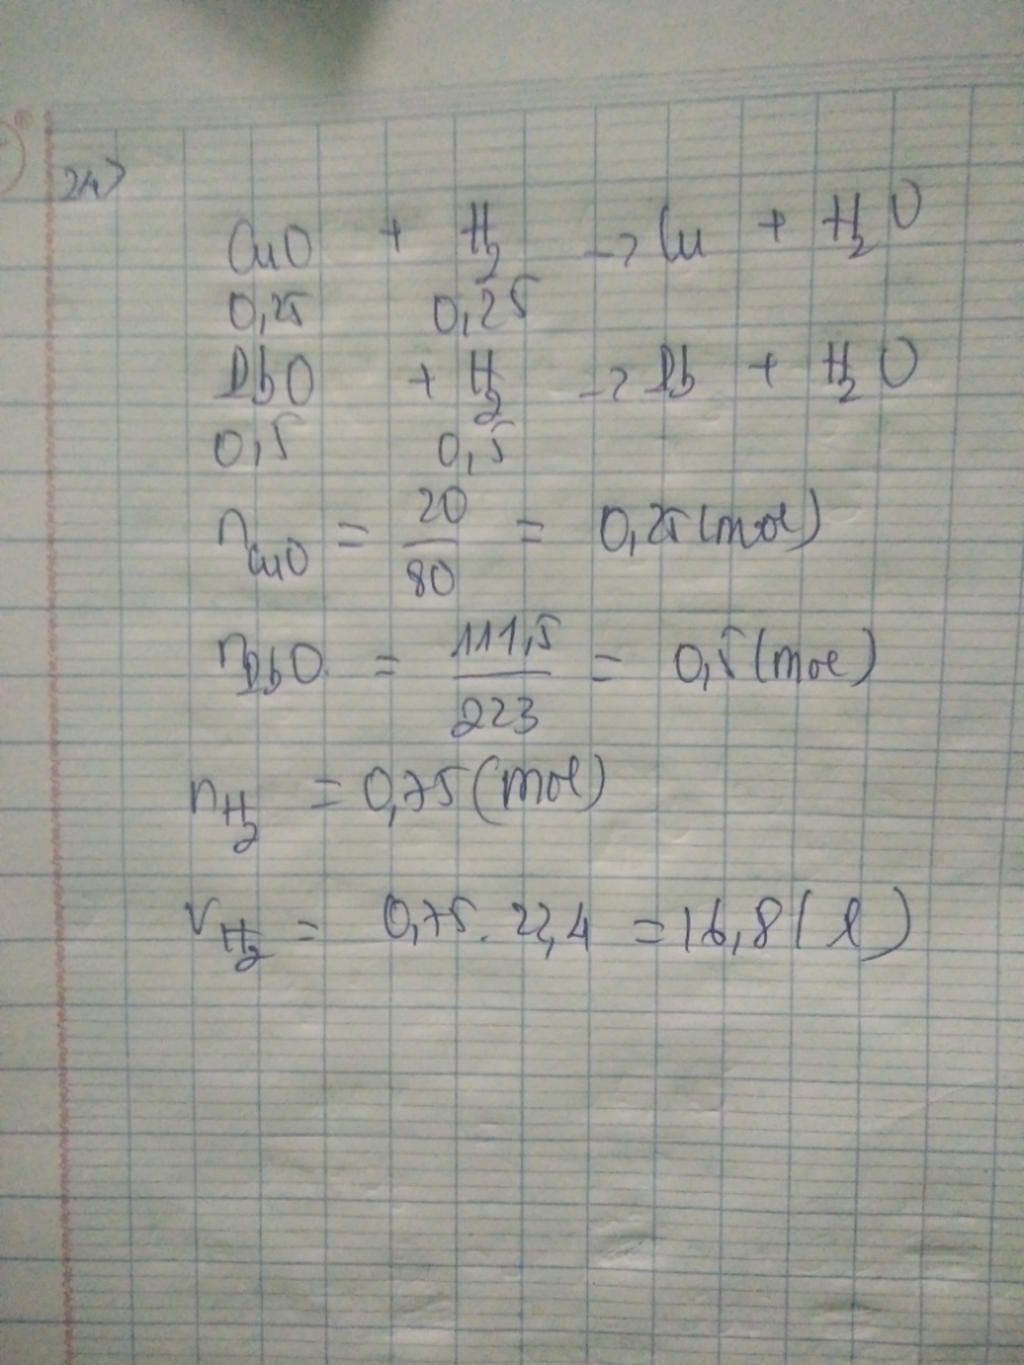 24>
CuO + H2 -> Cu + H2O
0,25 0,25
PbO + H2 -> Pb + H2O
0,5 0,5
nCuO = 20/80 = 0,25(mol)
nPbO = 111,5/223 = 0,5(mol)
nH2 = 0,75(mol)
VH2 = 0,75. 22,4 = 16,8(l)